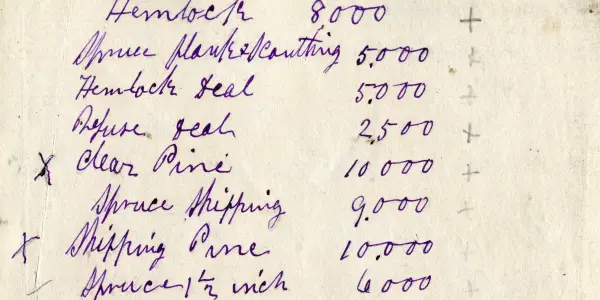 Hemlock 8,000 +
Spruce plank & Scantling 5,000 +
Hemlock Deal 5,000 +
Refuse Deal 2,500 +
X Clear Pine 10,000 +
Spruce Shipping 9,000 +
X Shipping Pine 10,000 +
Spruce 1½ inch 6000 +